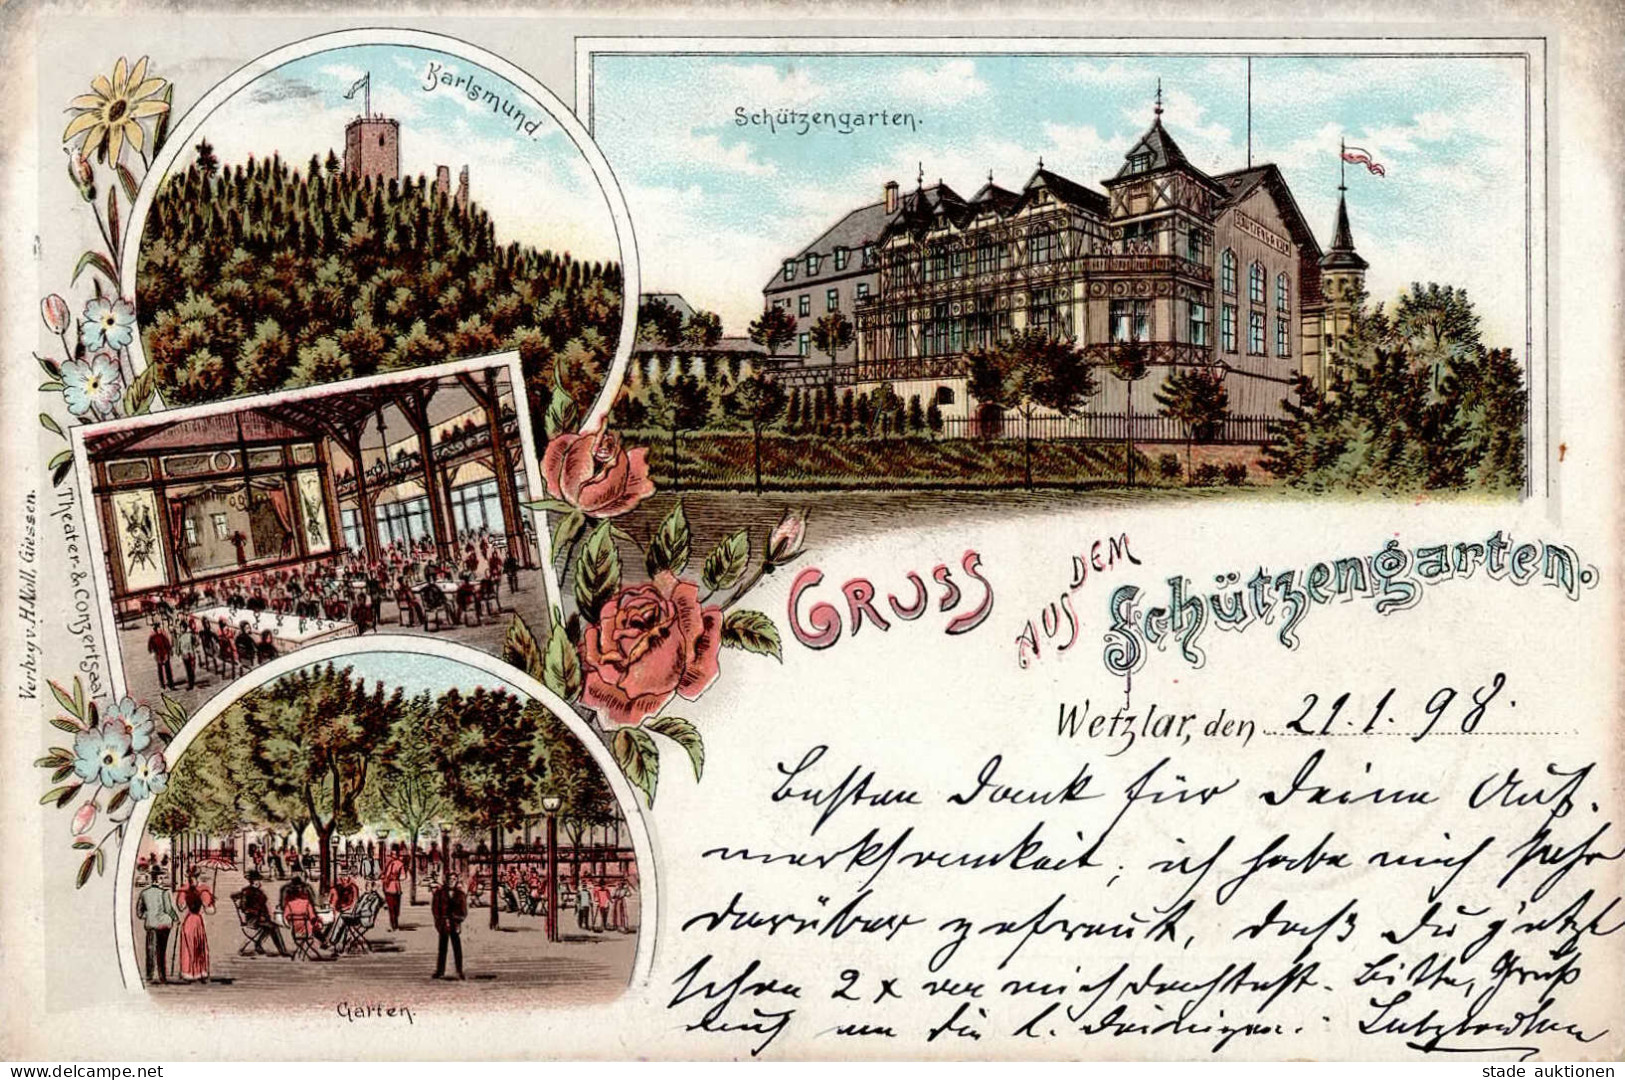 Karlsmund.
Schützengarten.
SCHÜTZENGARTEN
Theater- & Conzertsaal
Verlag v. H. Noll, Giessen.
Garten.
GRUSS AUS DEM Schützengarten.
Wetzlar, den 21.1.98.
Besten Dank für Deine Auf-
merksamkeit, ich habe mich sehr
darüber gefreut, daß Du jetzt
schon 2 x an mich dachtest. Bitte, Gruß
auch an die l. Deinigen.
stade auktionen